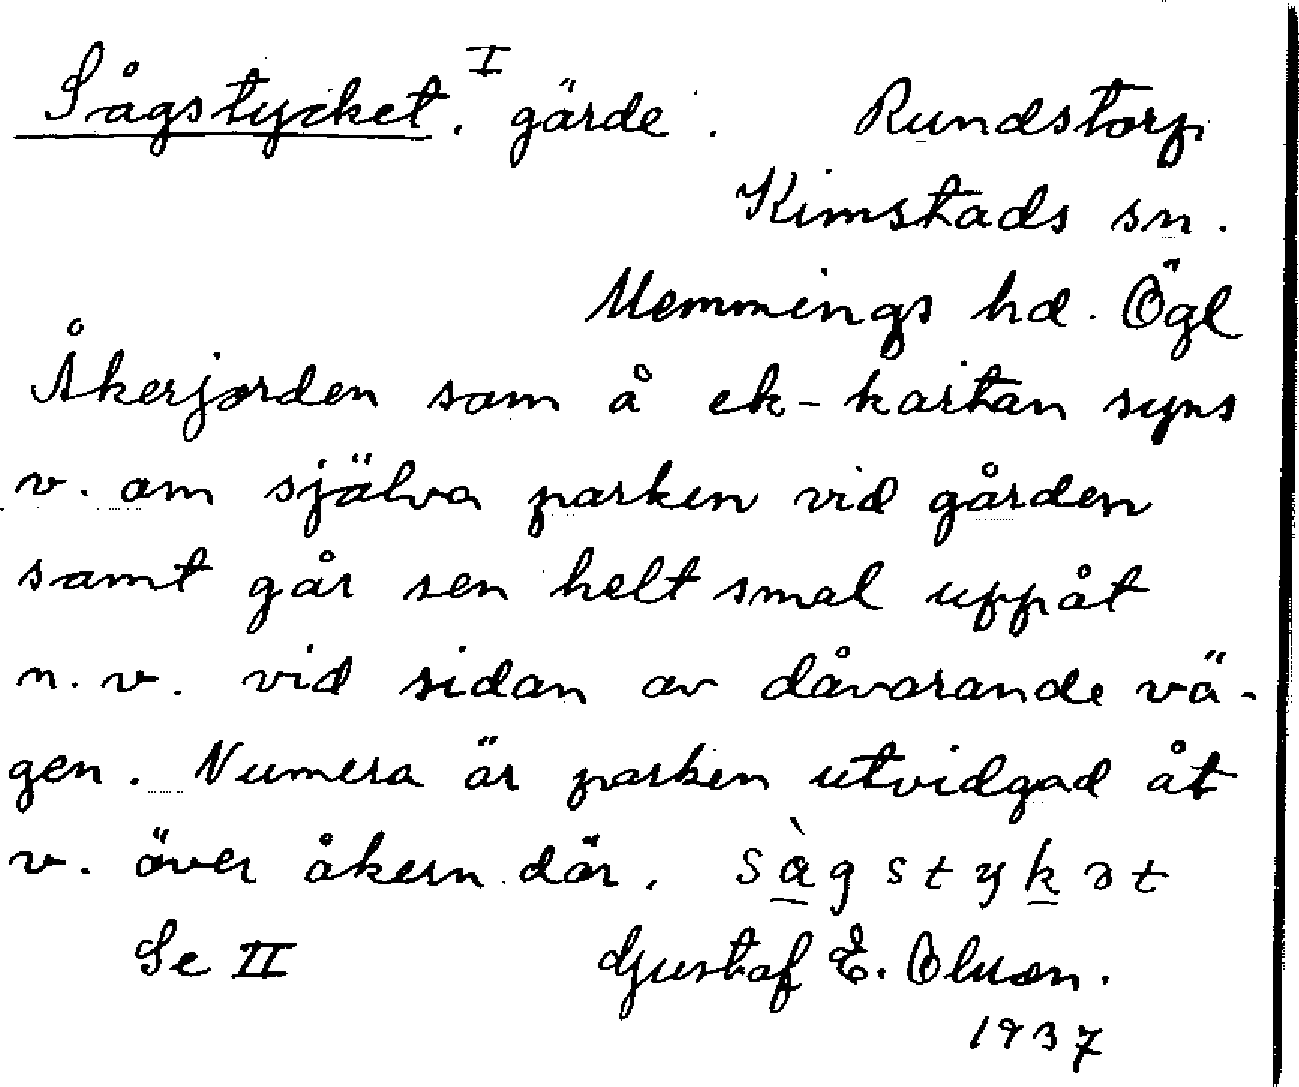 Sågstycket. I gärde. Rundstorp
Kimstads sn.
Memmings hd. Ögl
Åkerjorden som å ek-kartan syns
v. om själva parken vid gården
samt går sen helt smal uppåt
n.v. vid sidan av dåvarande vä-
gen. Numera är parken utvidgad åt
v. över åkern där. sàgstykət
Se II Gustaf E. Olsson.
1937